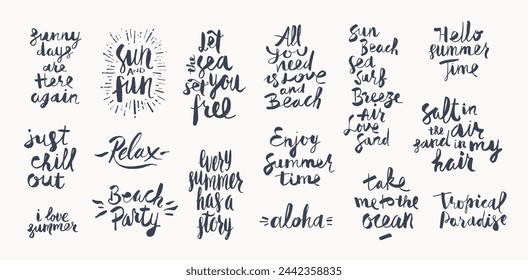 sunny
days
are
Here
again
Sun
AND
fun
Let
the sea
set you
free
All
you
need
is Love
and
Beach
Sun
Beach
Sea
Surf
Breeze
Air
Love
Sand
Hello
summer
Time
just
chill
out
Relax
Beach
Party
every
summer
has a
story
Enjoy
Summer
time
aloha
take
me to the
ocean
salt in
the air
sand in my
hair
i love
summer
Tropical
Paradise
shutterstock
IMAGE ID: 2442358835
www.shutterstock.com